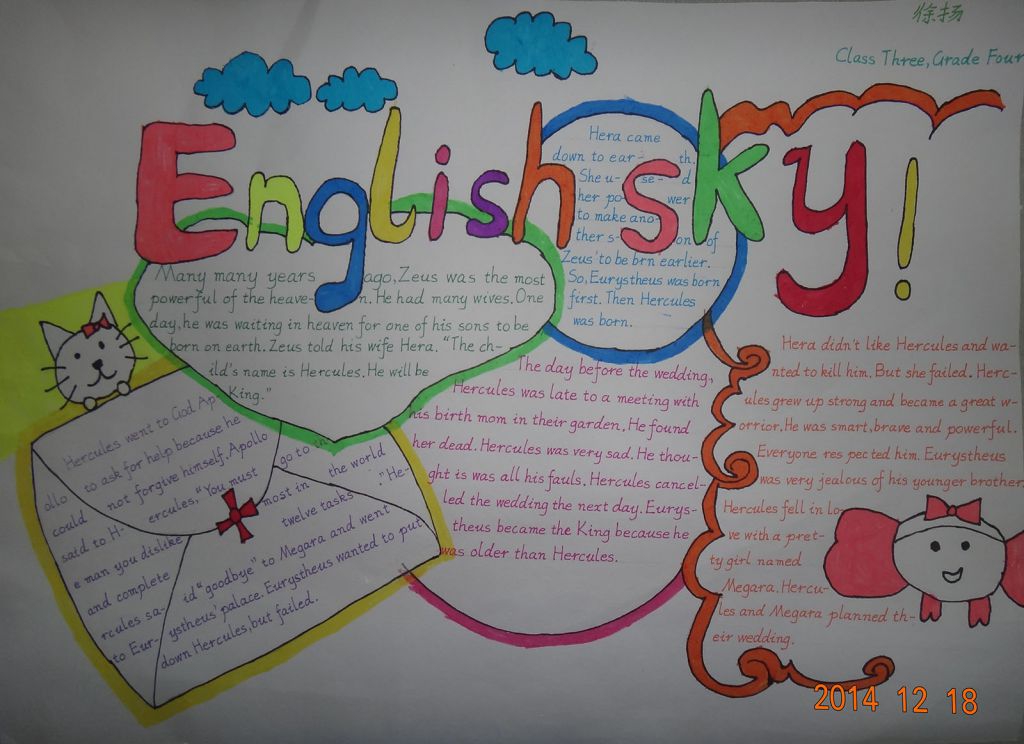 徐扬
Class Three, Grade Four
English sky!
Many many years ago, Zeus was the most
powerful of the heave-n. He had many wives. One
day, he was waiting in heaven for one of his sons to be
born on earth. Zeus told his wife Hera. "The ch-
ild's name is Hercules. He will be
King."
Hera came
down to ear-th.
She u-se-d
her po-wer
to make ano-
ther s-on of
Zeus' to be brn earlier.
So, Eurystheus was born
first. Then Hercules
was born.
Hera didn't like Hercules and wa-
nted to kill him. But she failed. Herc-
ules grew up strong and became a great w-
orrior. He was smart, brave and powerful.
Everyone res pected him. Eurystheus
was very jealous of his younger brother.
Hercules fell in lo-
ve with a pret-
ty girl named
Megara. Hercu-
les and Megara planned th-
eir wedding.
The day before the wedding,
Hercules was late to a meeting with
his birth mom in their garden. He found
her dead. Hercules was very sad. He thou-
ght is was all his fauls. Hercules cancel-
led the wedding the next day. Eurys-
theus became the King because he
was older than Hercules.
Hercules went to God Ap-
ollo to ask for help because he
could not forgive himself. Apollo
said to H-ercules. "You must go to in the world
e man you dislike most in
and complete twelve tasks." "He-
rcules sa-id "goodbye" to Megara and went
to Eur-ystheus' palace. Eurystheus wanted to put
down Hercules, but failed.
2014 12 18